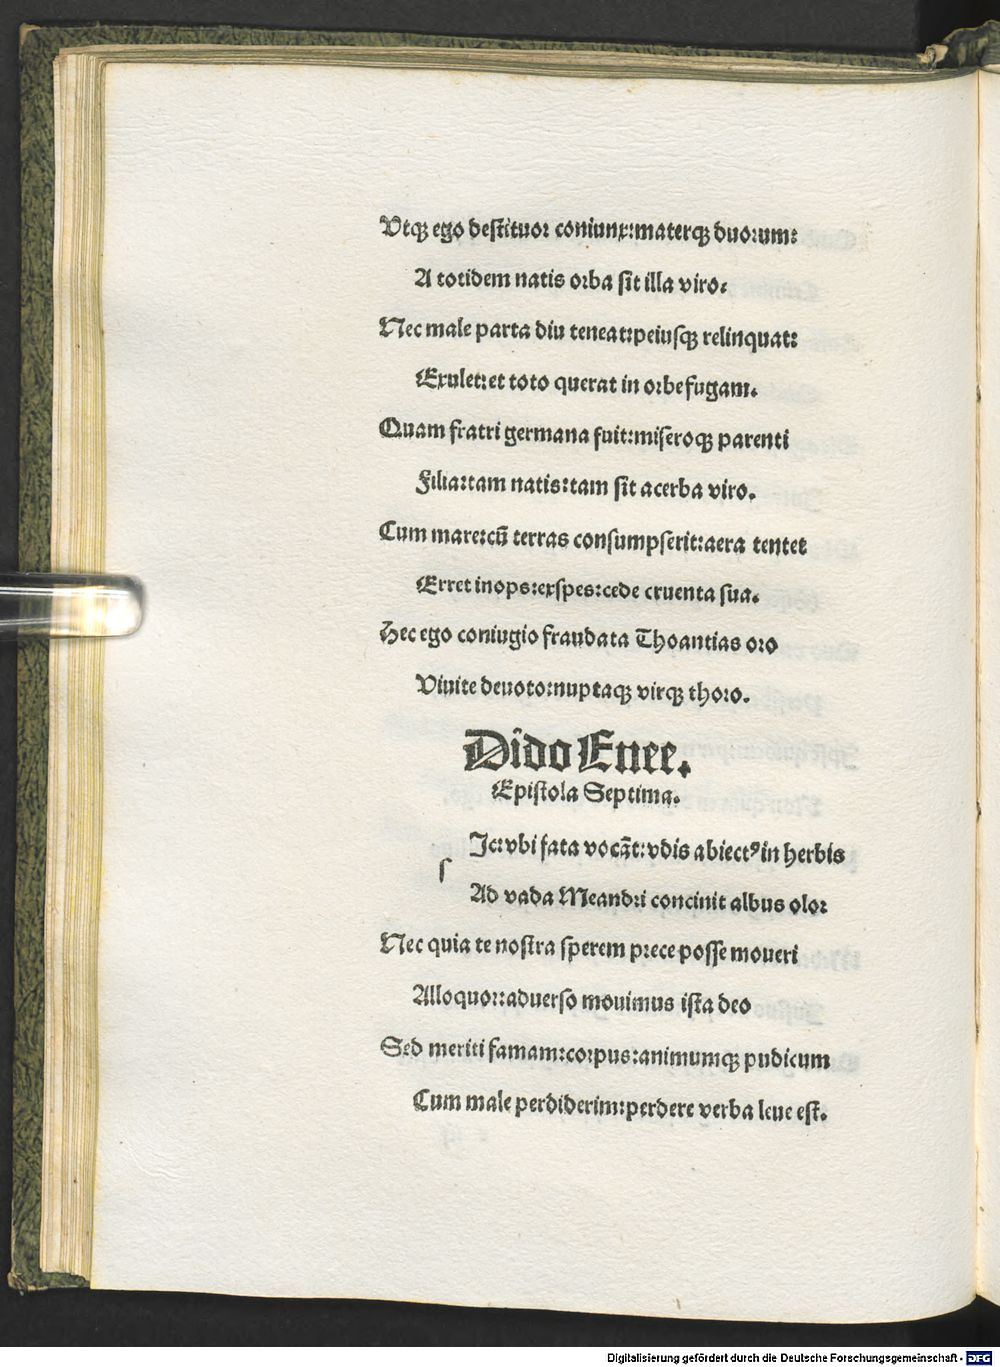 Vtqꝫ ego destituor coniunx:materqꝫ duorum:
A totidem natis orba sit illa viro.
Nec male parta diu teneat:peiusqꝫ relinquat:
Exulet:et toto querat in orbe fugam.
Quam fratri germana fuit:miseroqꝫ parenti
Filia:tam natis:tam sit acerba viro.
Cum mare:cū terras consumpserit:aera tentet
Erret inops:exspes:cede cruenta sua.
Hec ego coniugio fraudata Thoantias oro
Viuite deuoto:nuptaqꝫ virqꝫ thoro.
Dido Enee.
Epistola Septima.
Ic:vbi fata vocāt:vdis abiectꝰ in herbis
s
Ad vada Meandri concinit albus olor
Nec quia te nostra sperem prece posse moueri
Alloquor:aduerso mouimus ista deo
Sed meriti famam:corpus:animumqꝫ pudicum
Cum male perdiderim:perdere verba leue est.
Digitalisierung gefördert durch die Deutsche Forschungsgemeinschaft - DFG